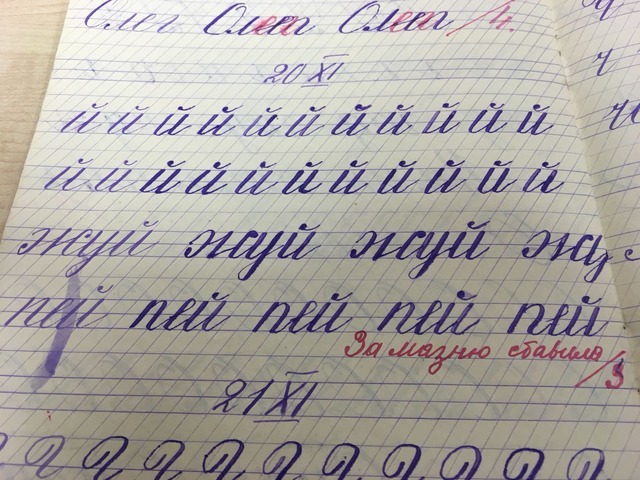 Олег Олег Олег /4.
20 XI
й й й й й й й й й й й
й й й й й й й й й й й
жуй жуй жуй жу
пей пей пей пей пей
За мазню ставила /3
21 XI